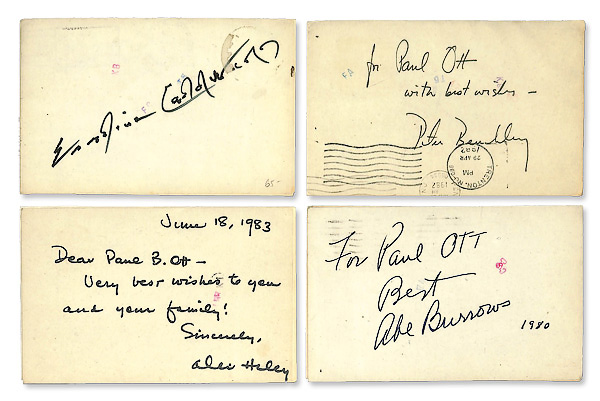 Erskine Caldwell
65-
for Paul Ott
with best wishes -
Peter Benchley
TRENTON, NJ
PM
29 APR
1982
June 18, 1983
Dear Paul B. Ott -
Very best wishes to you
and your family!
Sincerely,
Alex Haley
For Paul Ott
Best
Abe Burrows
1980